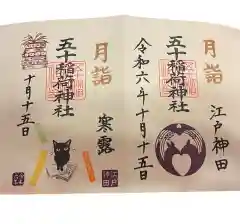 月詣
江戸神田
五十稲荷神社
令和六年十月十五日
月詣
寒露
五十稲荷神社
十月十五日
江戸
神田